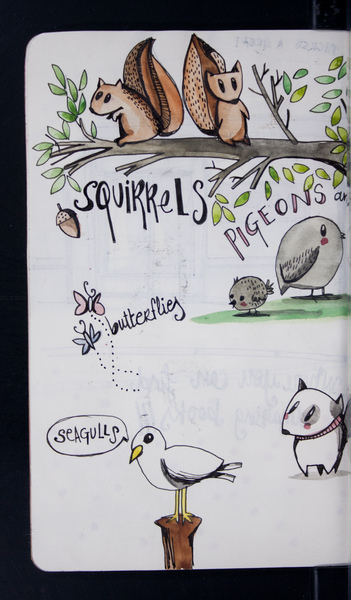 SQUIRRELS
PIGEONS an
butterflies
SEAGULLS